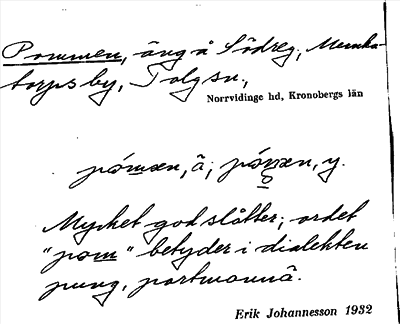 Pommen, äng å Södreg, Munka-
torps by, Tolg sn.,
Norrvidinge hd, Kronobergs län
pómmen, ä; pómmen, y.
Mycket god slåtter; ordet
"pom" betyder i dialekten
pung, portmonnä.
Erik Johannesson 1932